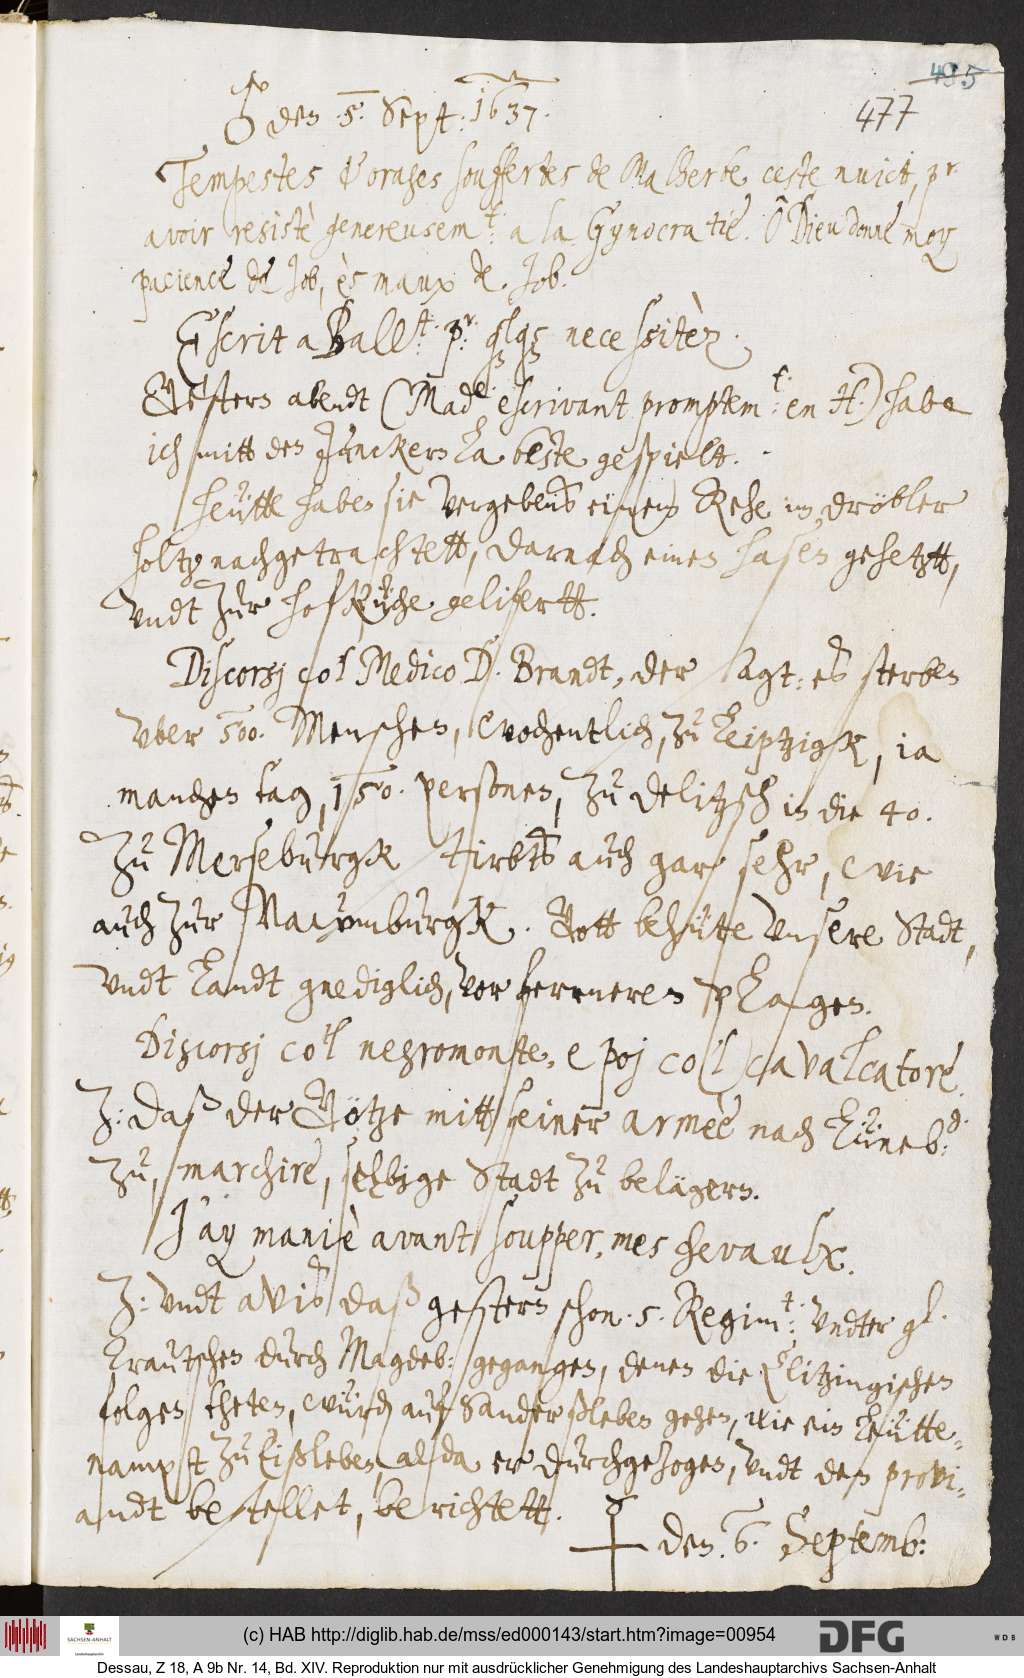 495
477
♂ den 5. Sept: 1637.
Tempestes & orages souffertes de Malherbe ceste nuict, pr
avoir resistè genereusemt: a la Gynocratie. Ô Dieu donne moy
pacience de Job, ès maux de Job.
Escrit a Ballt: pr: qlqs necessitèz.
Gestern abendt (Made. escrivant promptemt: en H.) habe
ich mitt den Junckern La beste gespielt.
Heütte haben sie vergebens einem Rehe im dröbler
holtz nachgetrachtett, darnach einen hasen gehetztt,
vndt zur hofküche geliefertt.
Discorsj col Medico D. Brandt, der sagt: es sterben
vber 500. Menschen, wochentlich, zu Leiptzigk, ia
manchen tag, 150. personen, zu Delitzsch in die 40.
Zu Merseburgk stirbts auch gar sehr, wie
auch zur Naumburgk. Gott behütte vnsere Stadt,
vndt Landt gnediglich, vor ferneren plagen.
Discorsj col negromonte, e poj col cavalcatore.
Z: daß der Götze mitt seiner armèe nach Lüneb:g.
zu, marchire, selbige Stadt zu belägern.
J'ay maniè avant soupper, mes chevaulx.
Z: vndt avis daß gestern schon 5. Regimt: vndter gl.
Krautschen durch Magdeb: gegangen, denen die Klitzingischen
folgen theten, würd auf Sanderßleben gehen, wie ein Leütte¬
nampt zu Eißleben, alda er durchgezogen, vndt den provi¬
andt bestellet, berichtett.
☿ den 6. Septemb:
(c) HAB http://diglib.hab.de/mss/ed000143/start.htm?image=00954
SACHSEN-ANHALT
DFG
WDB
Dessau, Z 18, A 9b Nr. 14, Bd. XIV. Reproduktion nur mit ausdrücklicher Genehmigung des Landeshauptarchivs Sachsen-Anhalt